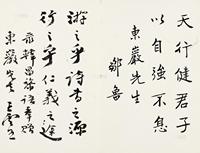 天行健君子
以自強不息
東巖先生
鄒魯
游之乎詩書之源
行之乎仁義之途
東巖先生